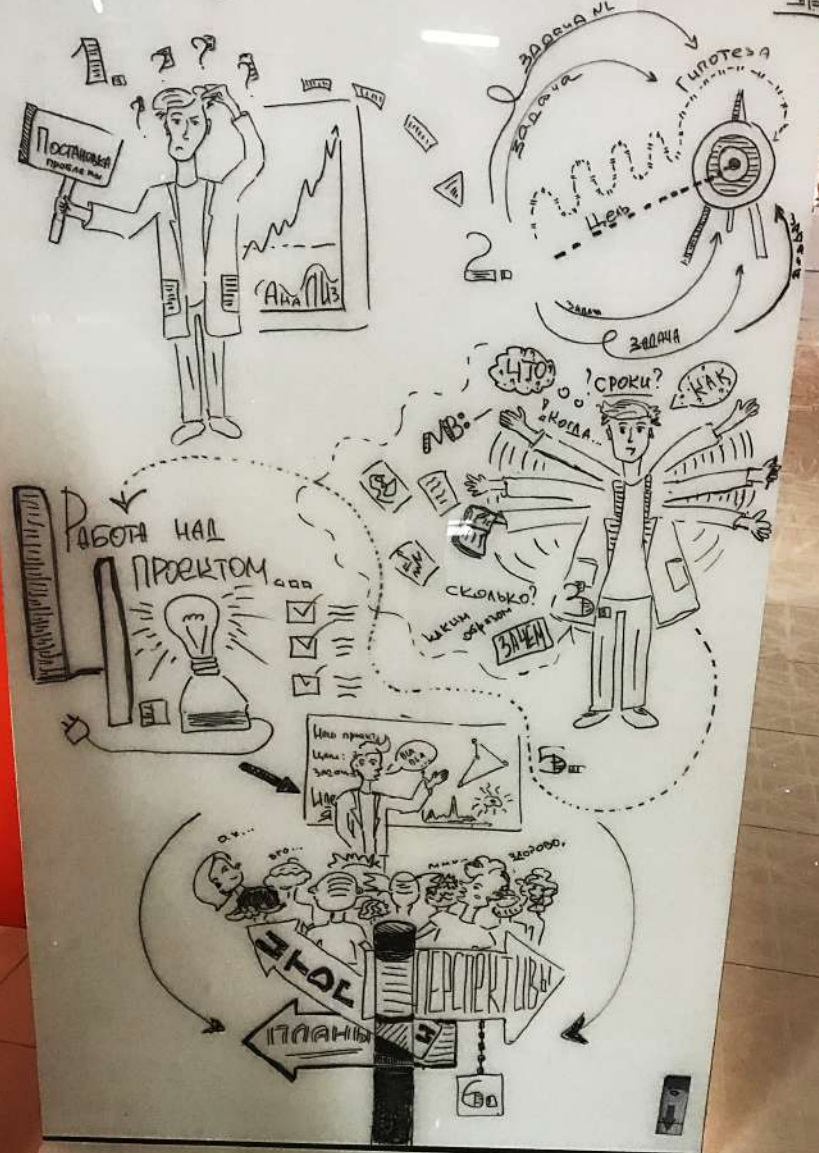 1.
? ? ? ?
Постановка
проблемы
Анализ
2.
Задача NL
Задача
Гипотеза
Цель
Задача
Задача
ЧТО
?СРОКИ?
КАК
?
Когда...
МВ:
3.
СКОЛЬКО?
Каким
образом
ЗАЧЕМ
4.
Работа над
проектом...
5.
Наш проект
Цели:
Bla
Bla
ах...
ого...
ммм...
здорово.
ИТОГ
ПЕРСПЕКТИВЫ
И
ПЛАНЫ
6.